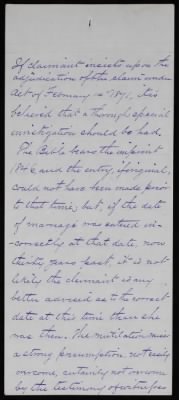 If claimant insists upon the
adjudication of the claim under
Act of February - 1871, it is
believed that a thorough special
investigation should be had.
The Bible bears the imprint
1846 and the entry, if original,
could not have been made prior
to that time, but, if the date
of marriage was entered in-
correctly at that date, now
thirty years past, it is not
likely the claimant is any
better advised as to the correct
date at this time than she
was then. The mutilation raises
a strong presumption not easily
overcome, certainly not overcome
by the testimony of